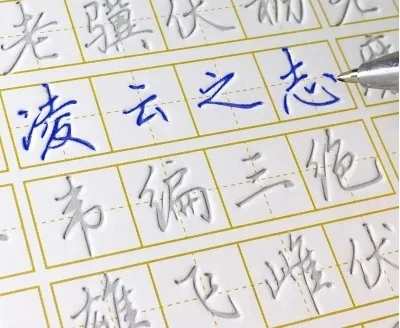 老骥伏枥老
凌云之志
韦编三绝
雄飞雌伏